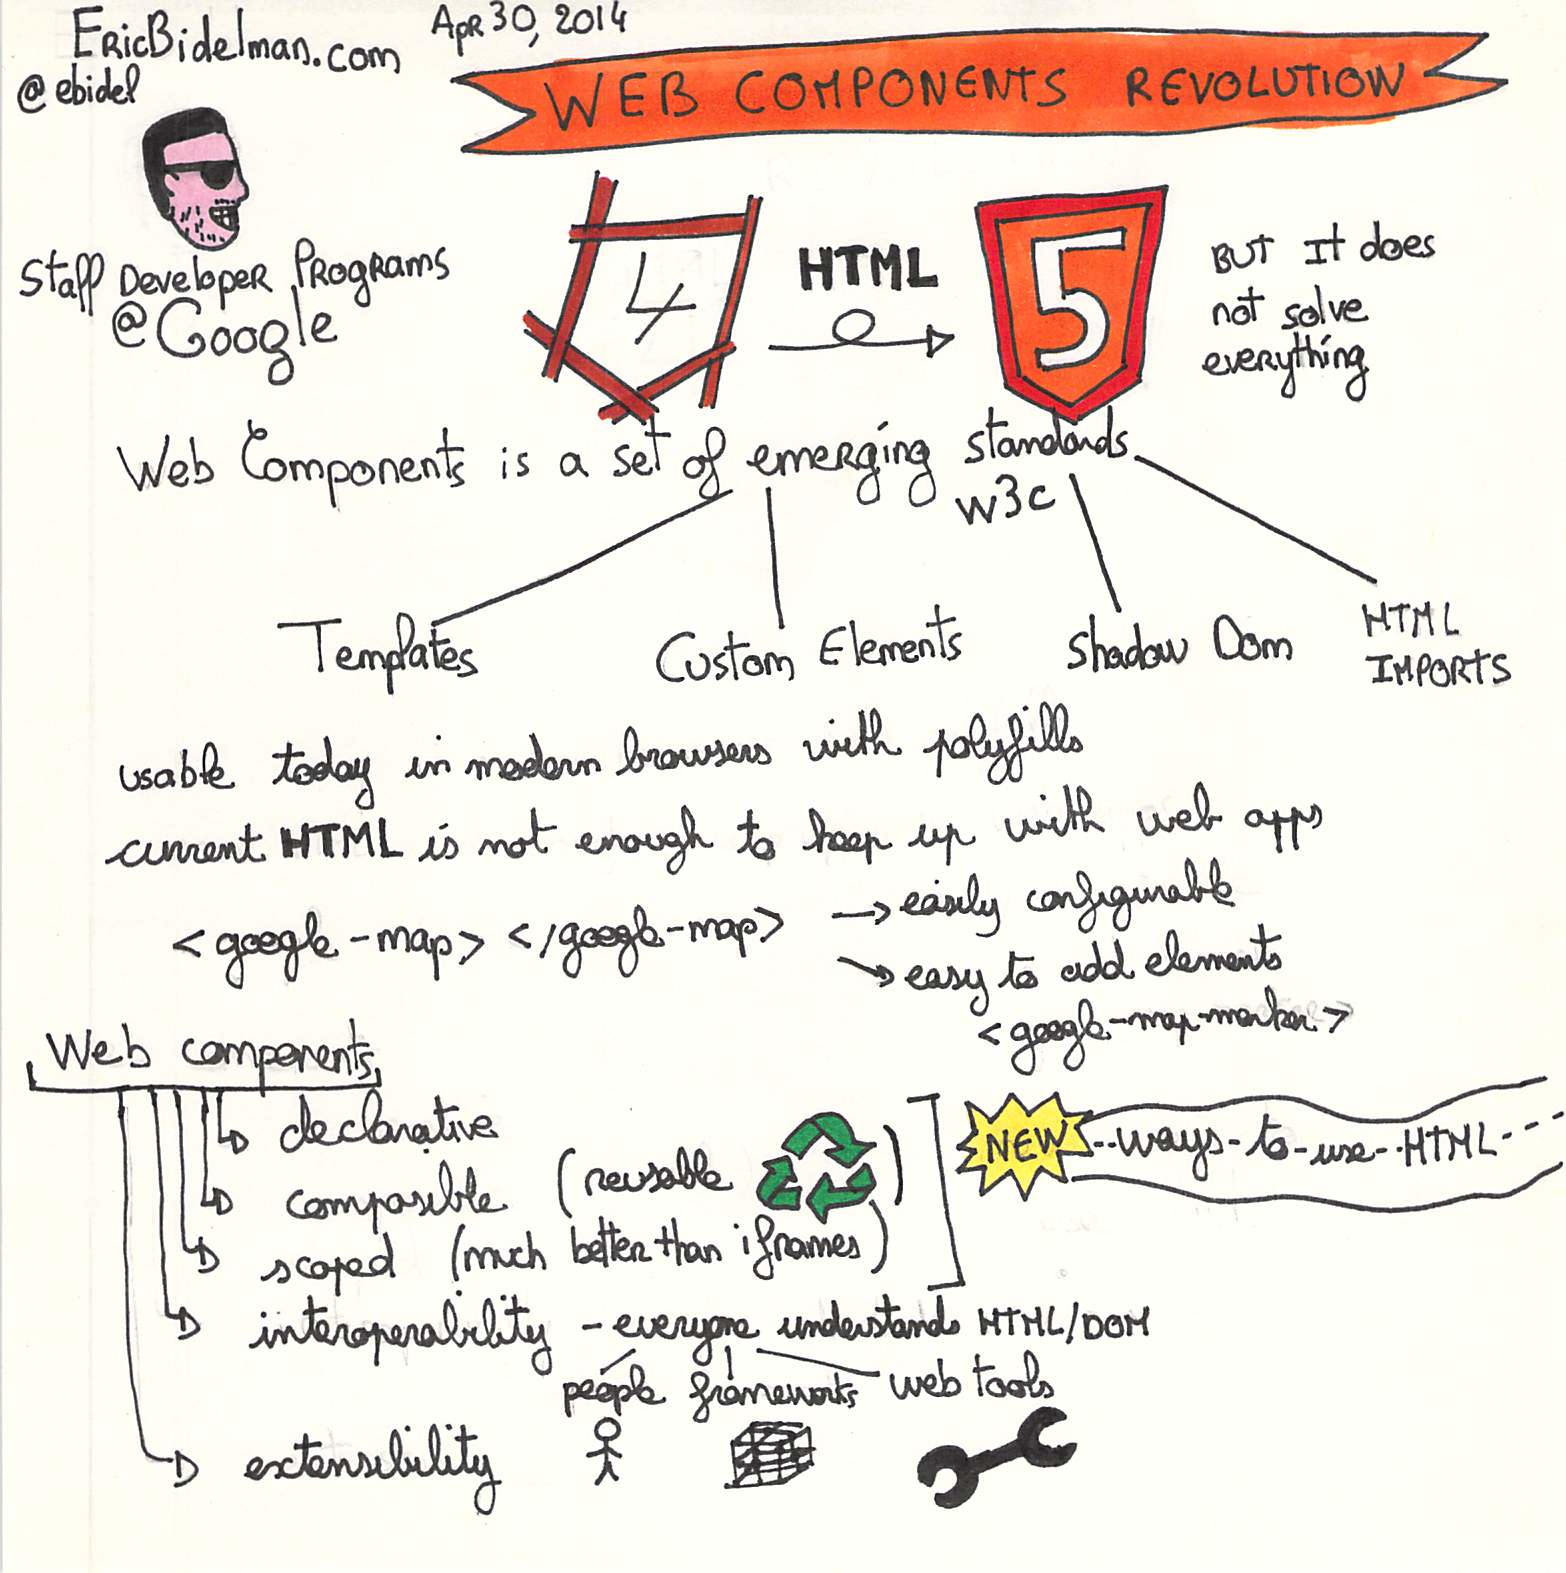 EricBidelman.com
Apr 30, 2014
@ebidel
WEB COMPONENTS REVOLUTION
Staff Developer Programs
@Google
4
HTML
5
BUT It does
not solve
everything
Web Components is a set of emerging standards
W3C
Templates
Custom Elements
Shadow Dom
HTML
IMPORTS
usable today in modern browsers with polyfills
current HTML is not enough to keep up with web apps
<google-map> </google-map>
→ easily configurable
→ easy to add elements
<google-map-marker>
Web components
declarative
composible (reusable )
scoped (much better than iframes)
NEW --ways-to-use--HTML---
interoperability - everyone understands HTML/DOM
people frameworks web tools
extensibility